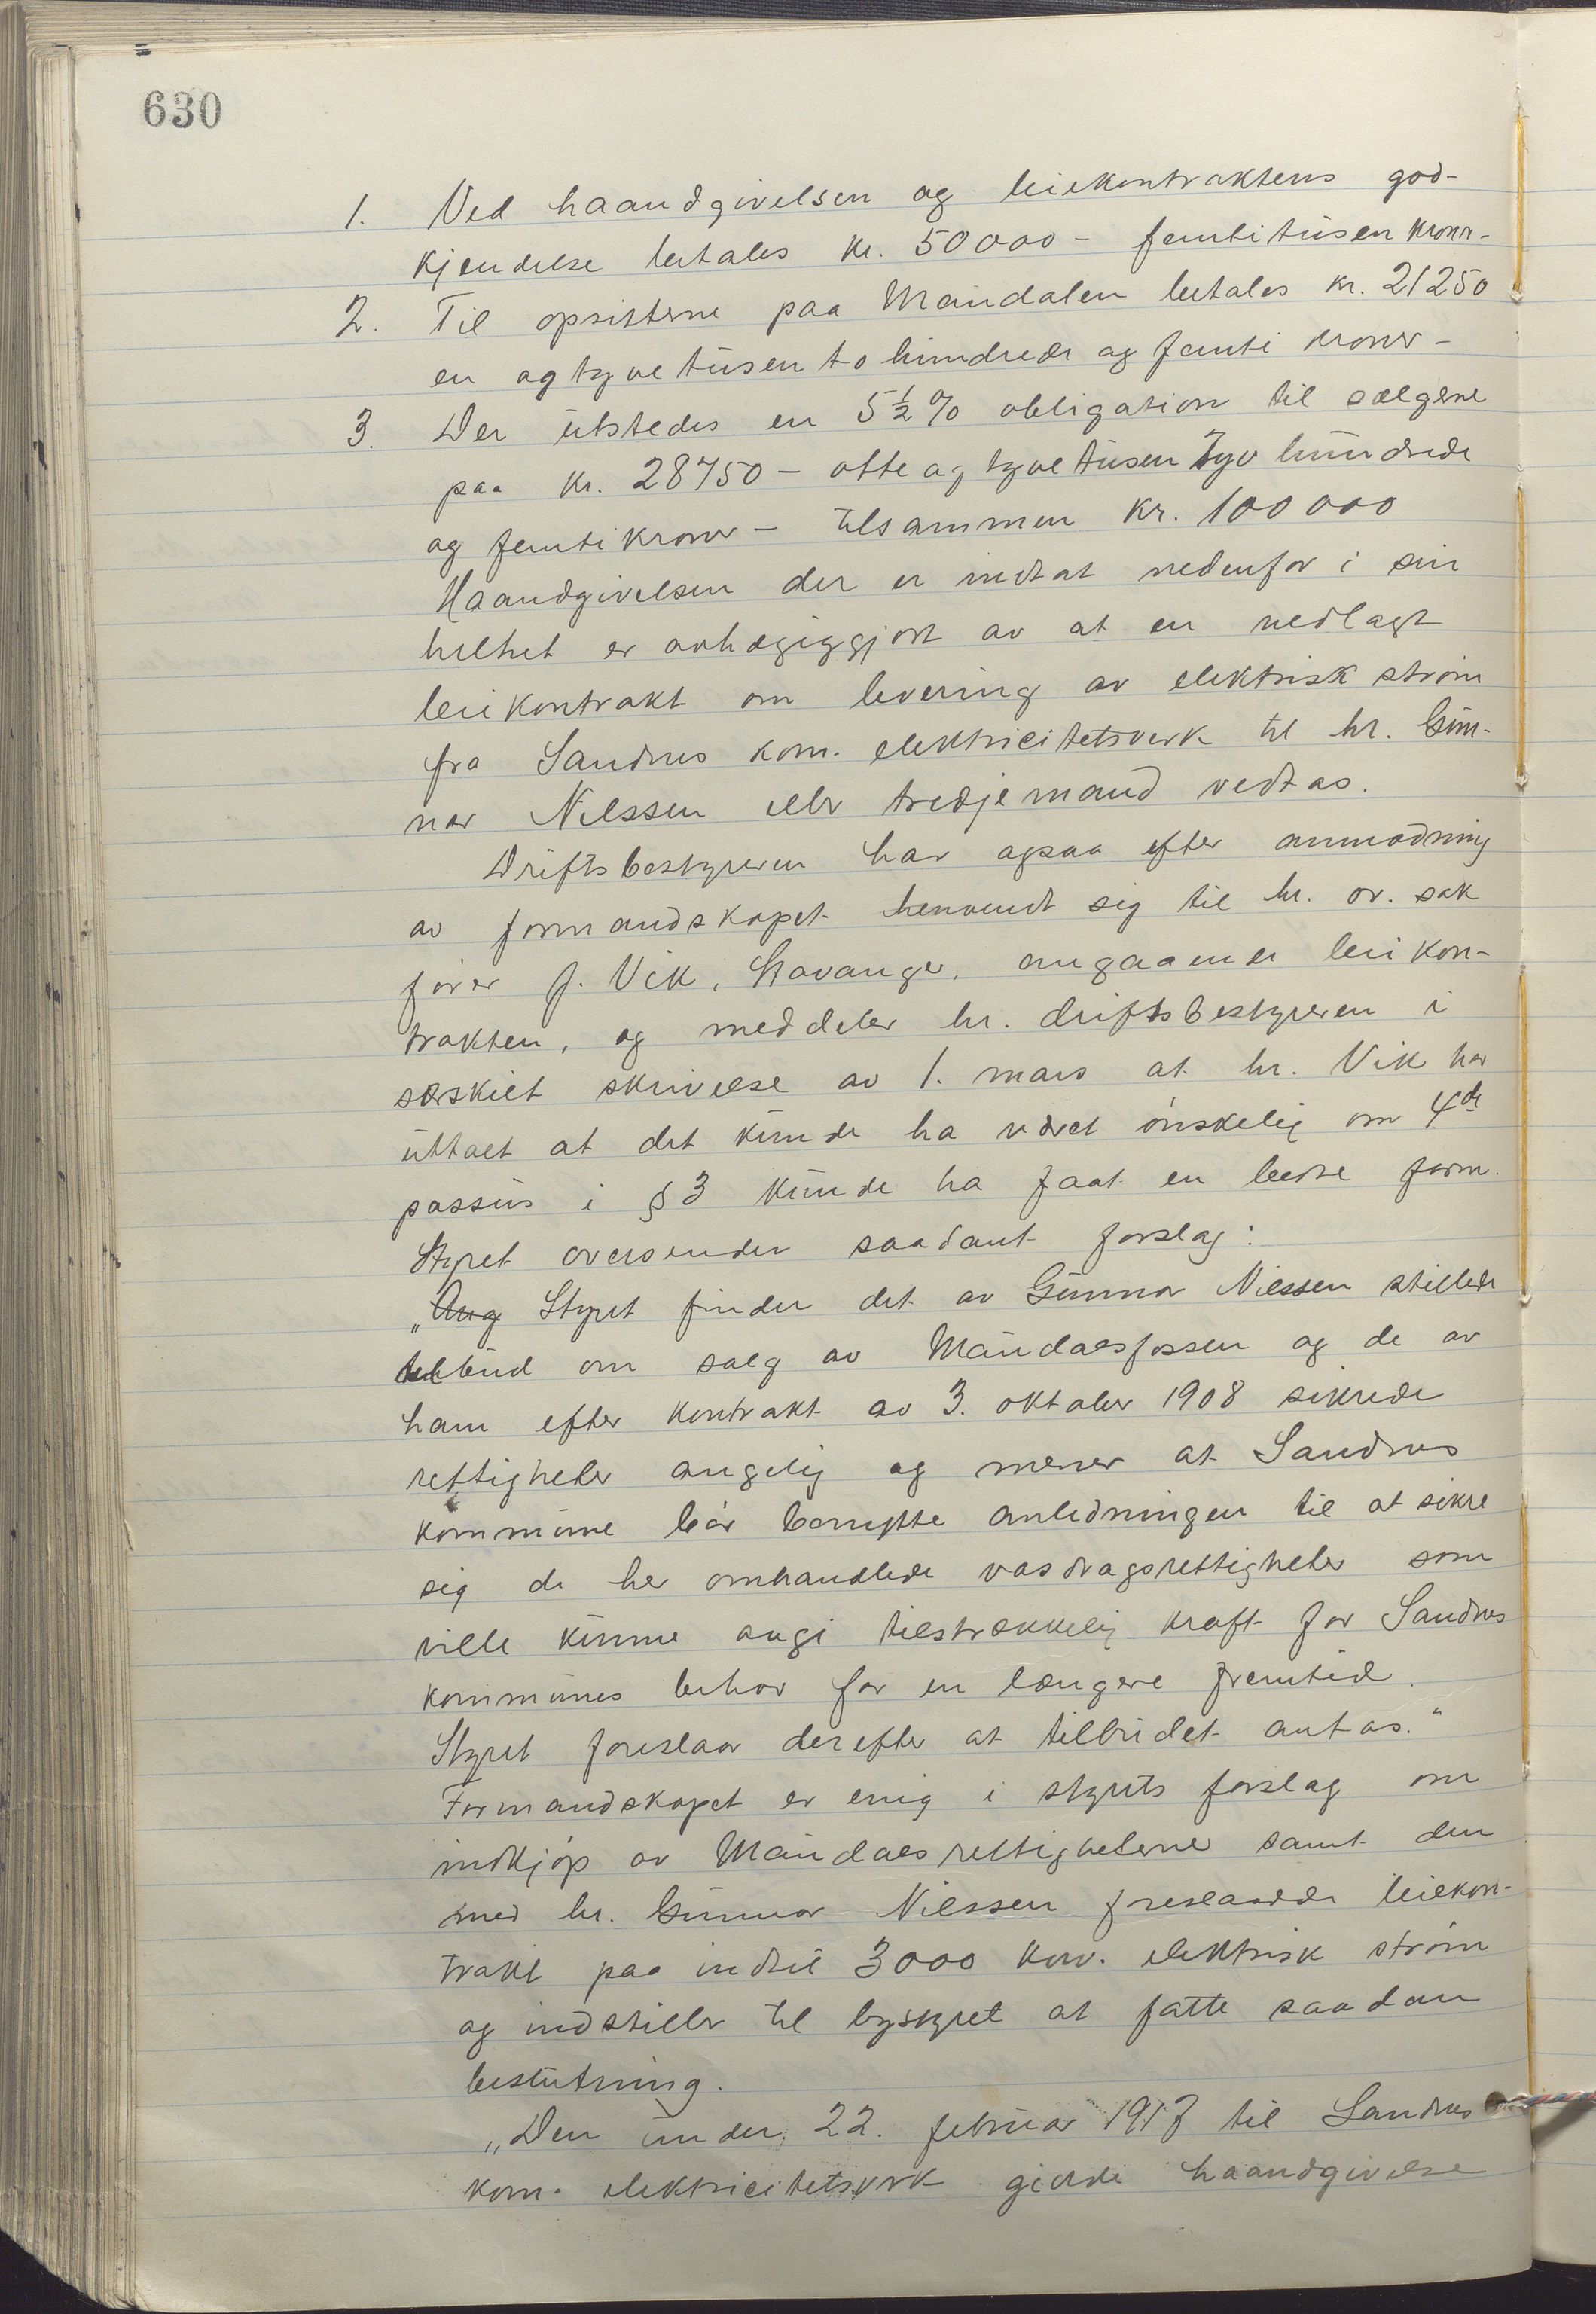 630
1. Ved haandgivelsen og leiekontraktens god-
kjendelse betales kr. 50000 - femti tusen kroner-
2. Til opsitterne paa Maudalen betales kr. 21250
en og tyve tusen to hundrede og femti kroner -
3. Der utstedes en 5½% obligation til sælgerne
paa kr. 28750 - otte og tyve tusen syv hundrede
og femti kroner - tilsammen kr. 100 000
Haandgivelsen der er indtat nedenfor i sin
helhet er avhægiggjort av at en vedlagt
leiekontrakt om levering av elektrisk strøm
fra Sandnes kom. elektricitetsverk til hr. Gun-
nar Nilssen eller tredjemand vedtas.
Driftsbestyreren har ogsaa efter anmodning
av formandskapet henvendt sig til hr. ov. sak
fører J. Vik, Stavanger, angaaende leiekon-
trakten, og meddeler hr. driftsbestyreren i
særskilt skrivelse av 1. mars at hr. Vik har
uttalt at det kunde ha været ønskelig om 4de
passus i § 3 kunde ha faat en bedre form.
Styret oversender saadant forslag:
„Aug Styret finder det av Gunnar Nilssen stillede
tilbud om salg av Maudalsfossen og de av
ham efter kontrakt av 3. oktober 1908 sikrede
rettigheter angelig og mener at Sandnes
kommune bør benytte anledningen til at sikre
sig de her omhandlede vasdragsrettigheter som
ville kunne avgi tilstrækkelig kraft for Sandnes
kommunes behov for en længere fremtid.
Styret foreslaar derefter at tilbudet antas."
Formandskapet er enig i styrets forslag om
indkjøp av Maudalsrettigheterne samt den
med hr. Gunnar Nilssen foreslaadde leiekon-
trakt paa indtil 3000 kw. elektrisk strøm
og indstiller til bystyret at fatte saadan
beslutning.
„Den under 22. februar 1917 til Sandnes
kom. elektricitetsverk givne haandgivelse